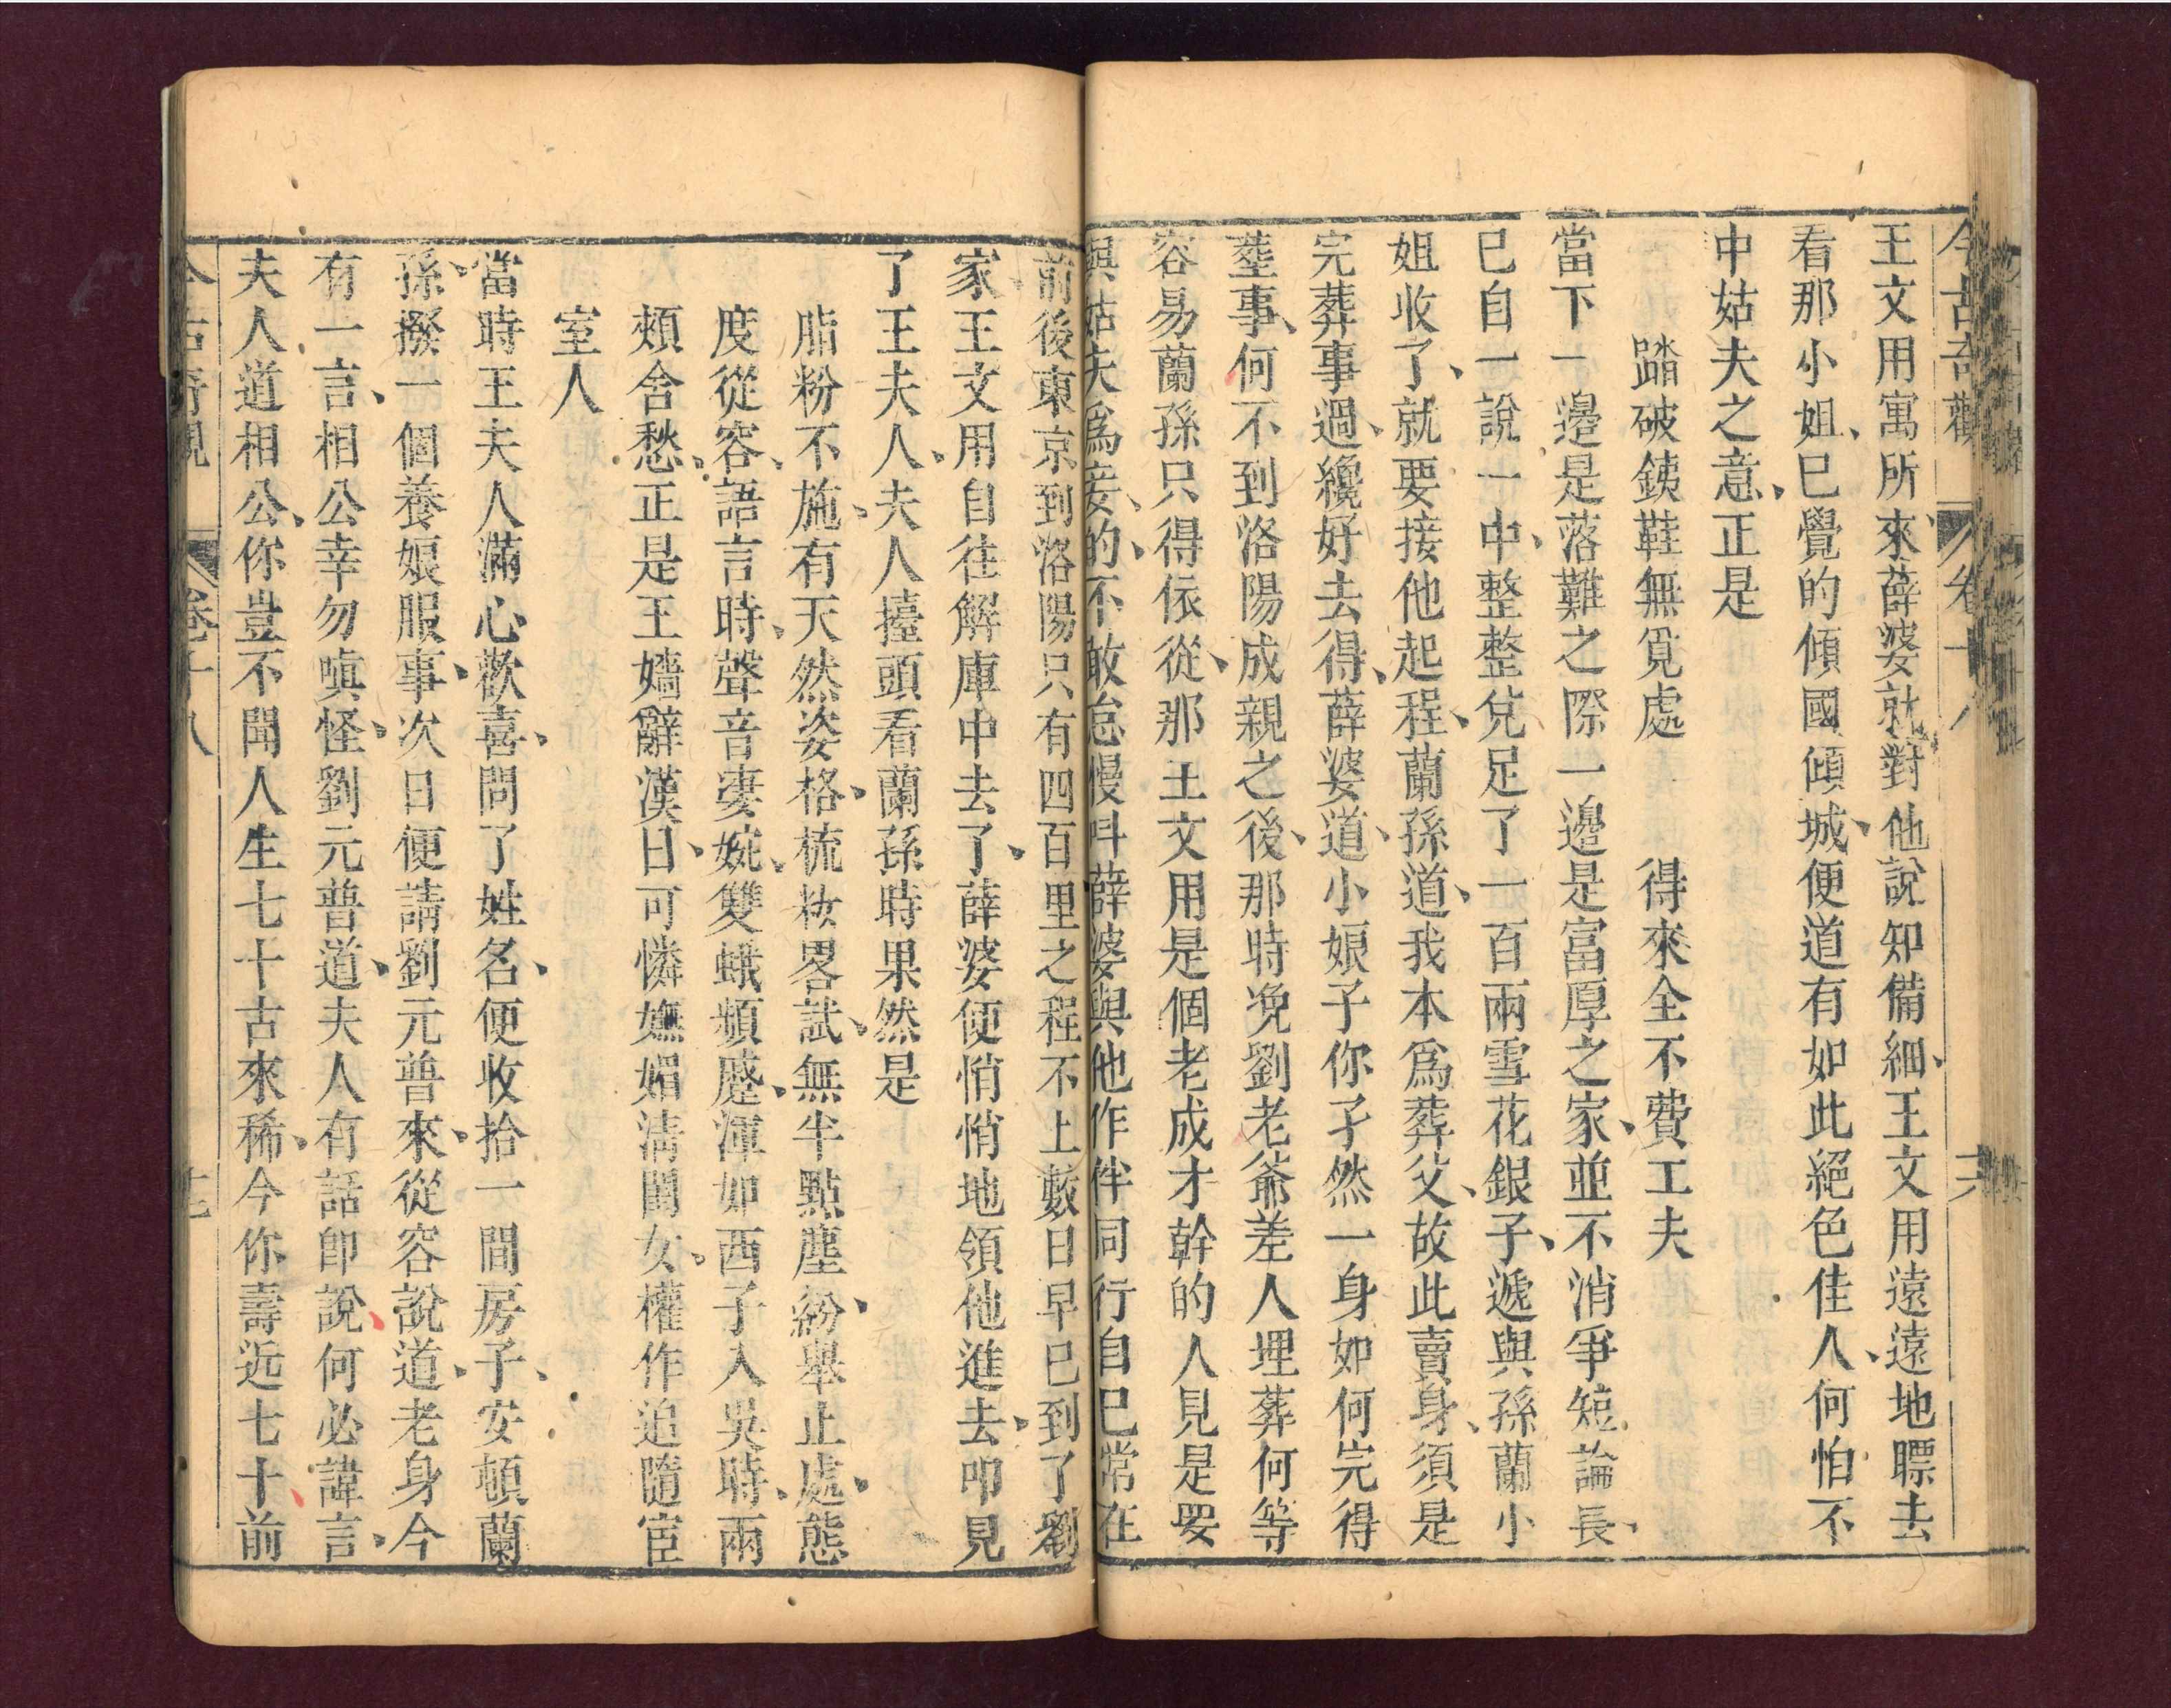 今古奇觀 卷十八 十六
王文用寓所來薛婆就對他說知備細王文用遠遠地瞟去
看那小姐巳覺的傾國傾城便道有如此絕色佳人何怕不
中姑夫之意正是
踏破銕鞋無覓處 得來全不費工夫
當下一邉是落難之際一邉是富厚之家並不消爭短論長
巳自一說一中整整兌足了一百兩雪花銀子遞與孫蘭小
姐收了就要接他起程蘭孫道我本爲葬父故此賣身須是
完葬事過纔好去得薛婆道小娘子你孑然一身如何完得
塟事何不到洛陽成親之後那時浼劉老爺差人埋葬何等
容易蘭孫只得依從那王文用是個老成才幹的人見是要
與姑夫爲妾的不敢怠慢呌薛婆與他作伴同行自巳常在
前後東京到洛陽只有四百里之程不上數日早巳到了劉
家王文用自徃解庫中去了薛婆便悄悄地領他進去叩見
了王夫人夫人擡頭看蘭孫時果然是
脂粉不施有天然姿格梳妝畧試無半點塵紛舉止處態
度從容語言時聲音凄婉雙蛾頻蹙渾如西子入吳時兩
頰舍愁正是王嬙辭漢日可憐嫵媚淸閨女權作追隨宦
室人
當時王夫人滿心歡喜問了姓名便收拾一間房子安頓蘭
孫撥一個養娘服事次日便請劉元普來從容說道老身今
有一言相公幸勿嗔怪劉元普道夫人有話卽說何必諱言
夫人道相公你豈不聞人生七十古來稀今你壽近七十前
今古奇觀 卷十八 十七